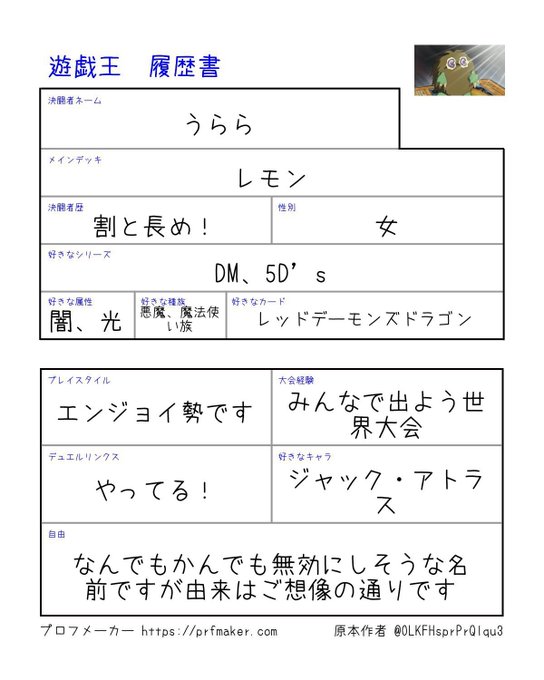 遊戯王　履歴書
決闘者ネーム
うらら
メインデッキ
レモン
決闘者歴
割と長め！
性別
女
好きなシリーズ
DM、5D’s
好きな属性
闇、光
好きな種族
悪魔、魔法使
い族
好きなカード
レッドデーモンズドラゴン
プレイスタイル
エンジョイ勢です
大会経験
みんなで出よう世
界大会
デュエルリンクス
やってる！
好きなキャラ
ジャック・アトラ
ス
自由
なんでもかんでも無効にしそうな名
前ですが由来はご想像の通りです
プロフメーカー https://prfmaker.com
原本作者 @OLKFHsprPrQlqu3